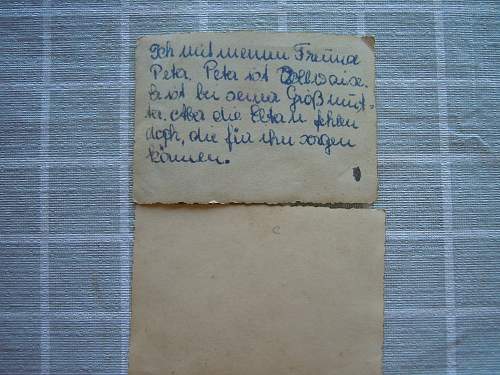 Ich mit meinem Freund
Peter. Peter ist Vollwaise.
Er ist bei seiner Großmut-
ter. Aber die Eltern fehlen
doch, die für ihn sorgen
können.
c